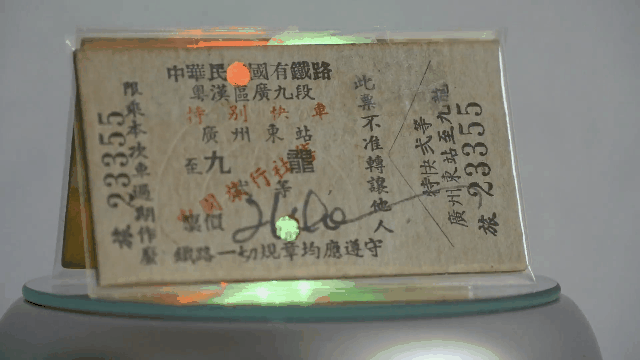 中華民國有鐵路
粵漢區廣九段
特別快車
廣州東站
至九龍
等
票價
鐵路一切規章均應遵守
限乘本次車過期作廢
旅 23355
此票不准轉讓他人
特快弍等
廣州東站至九龍
旅 23355
旅行社